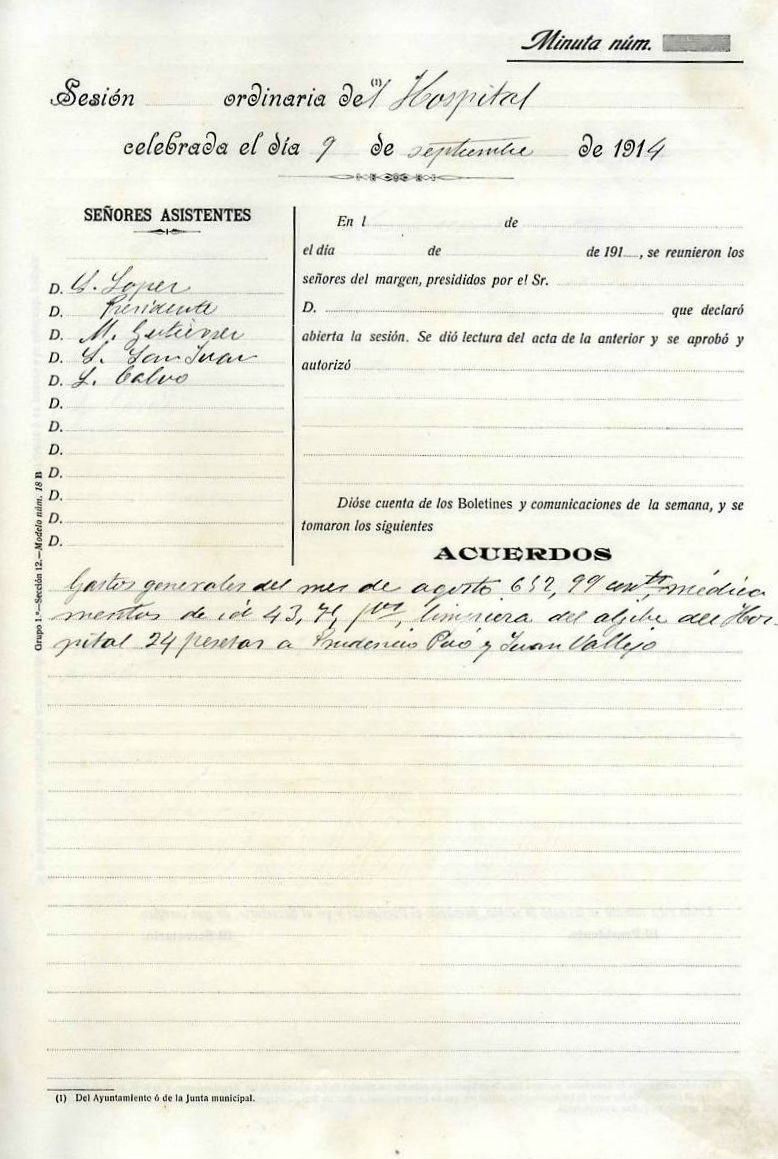 Minuta núm.
Sesión ordinaria de (1) l Hospital
celebrada el día 9 de septiembre de 1914
SEÑORES ASISTENTES
D. S. Lopez
D. Presidente
D. M. Gutierrez
D. S. San Juan
D. L. Calvo
D.
D.
D.
D.
D.
D.
D.
En l de
el día de de 191 , se reunieron los
señores del margen, presididos por el Sr.
D. que declaró
abierta la sesión. Se dió lectura del acta de la anterior y se aprobó y
autorizó
Dióse cuenta de los Boletines y comunicaciones de la semana, y se
tomaron los siguientes
ACUERDOS
Gastos generales del mes de agosto 652,99 médica
mentos de id 43,71 limpieza del aljibe del Hos-
pital 24 pesetas a Prudencio y Juan Vallejo
Grupo 1.º—Sección 12.—Modelo núm. 18 B
(1) Del Ayuntamiento ó de la Junta municipal.